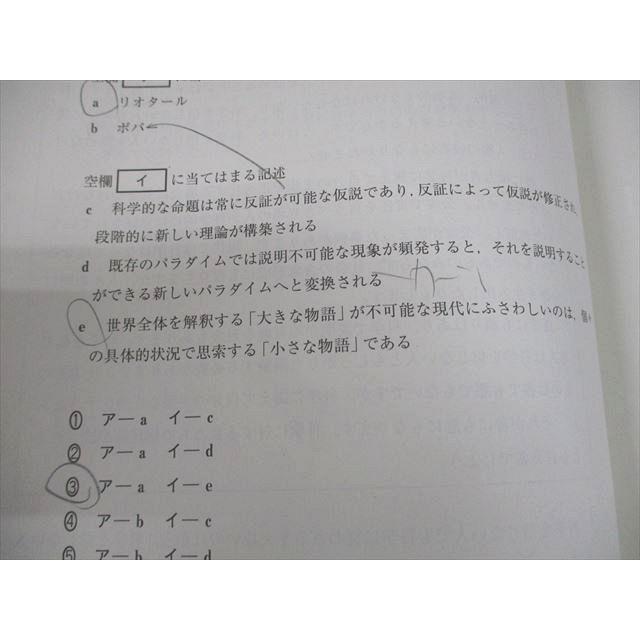 a リオタール
b ポパー
空欄 イ に当てはまる記述
c 科学的な命題は常に反証が可能な仮説であり，反証によって仮説が修正され，
段階的に新しい理論が構築される
d 既存のパラダイムでは説明不可能な現象が頻発すると，それを説明すること
ができる新しいパラダイムへと変換される
クーン
e 世界全体を解釈する「大きな物語」が不可能な現代にふさわしいのは，個々
の具体的状況で思索する「小さな物語」である
① ア－a イ－c
② ア－a イ－d
③ ア－a イ－e
④ ア－b イ－c
⑤ ア－b イ－d